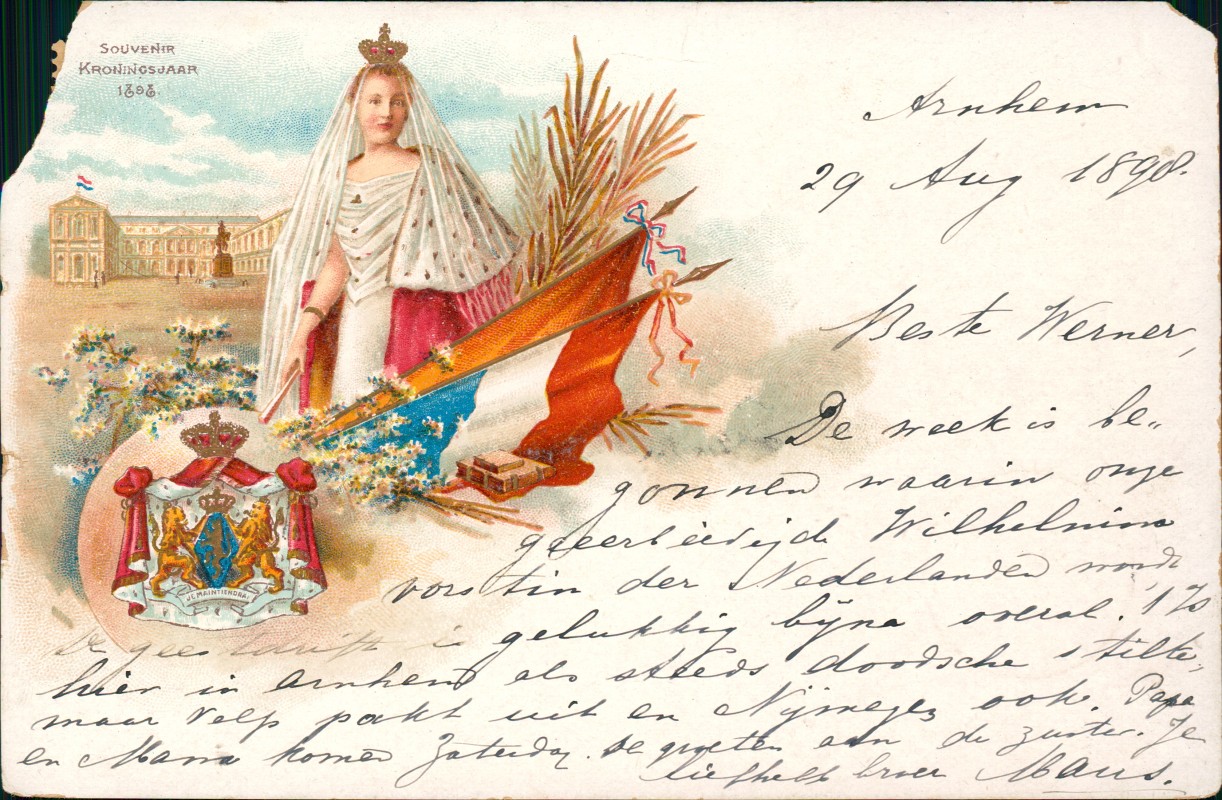 SOUVENIR
KRONINGSJAAR
1898.
Arnhem
29 Aug 1898.
Beste Werner,
De week is be„
gonnen waarin onze
geeerbiedijde Wilhelmina
vorstin der Nederlanden wordt
De geestdrift is gelukkig bijna overal. 't Is
hier in Arnhem als steeds doodsche stilte,
maar Velp pakt uit en Nijmegen ook. Papa
en Mama komen Zaterdag. De groeten aan de zuster. Je
liefhebb broer Maus.
JE MAINTIENDRAI